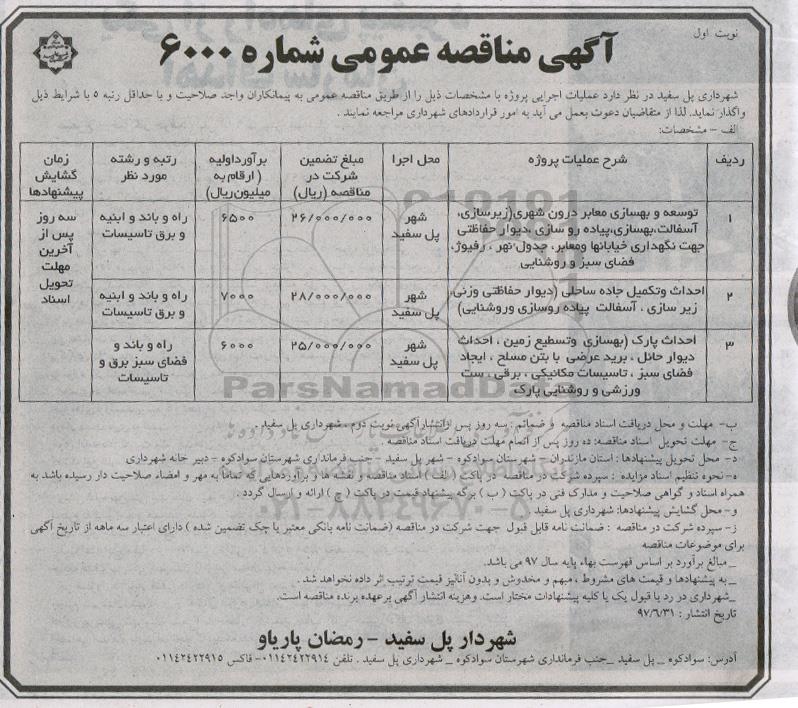 نوبت اول
آگهی مناقصه عمومی شماره ۶۰۰۰
شهرداری پل سفید در نظر دارد عملیات اجرایی پروژه با مشخصات ذیل را از طریق مناقصه عمومی به پیمانکاران واجد صلاحیت و با حداقل رتبه ۵ با شرایط ذیل
واگذار نماید. لذا از متقاضیان دعوت بعمل می آید به امور قراردادهای شهرداری مراجعه نمایند .
الف – مشخصات:
ردیف
شرح عملیات پروژه
محل اجرا
مبلغ تضمین
شرکت در
مناقصه (ریال)
برآورداولیه
( ارقام به
میلیون ریال)
رتبه و رشته
مورد نظر
زمان
گشایش
پیشنهادها
۱
توسعه و بهسازی معابر درون شهری(زیرسازی،
آسفالت،بهسازی،پیاده رو سازی ،دیوار حفاظتی
جهت نگهداری خیابانها ومعابر، جدول ،نهر ، رفیوژ،
فضای سبز و روشنایی
شهر
پل سفید
۲۶/۰۰۰/۰۰۰
۶۵۰۰
راه و باند و ابنیه
و برق تاسیسات
سه روز
پس از
آخرین
مهلت
تحویل
اسناد
۲
احداث وتکمیل جاده ساحلی (دیوار حفاظتی وزنی،
زیر سازی ، آسفالت پیاده روسازی وروشنایی)
شهر
پل سفید
۲۸/۰۰۰/۰۰۰
۷۰۰۰
راه و باند و ابنیه
و برق تاسیسات
۳
احداث پارک (بهسازی وتسطیع زمین ، احداث
دیوار حائل ، برید عرضی با بتن مسلح ، ایجاد
فضای سبز ، تاسیسات مکانیکی ، برقی ، ست
ورزشی و روشنایی پارک
شهر
پل سفید
۲۵/۰۰۰/۰۰۰
۶۰۰۰
راه و باند و
فضای سبز برق و
تاسیسات
ParsNamadData
ب- مهلت و محل دریافت اسناد مناقصه و ضمائم : سه روز پس از انتشار آگهی نوبت دوم ، شهرداری پل سفید .
ج- مهلت تحویل اسناد مناقصه: ده روز پس از اتمام مهلت دریافت اسناد مناقصه .
د- محل تحویل پیشنهادها : استان مازندران – شهرستان سوادکوه – شهر پل سفید – جنب فرمانداری شهرستان سوادکوه – دبیر خانه شهرداری
ه- نحوه تنظیم اسناد مزایده : سپرده شرکت در مناقصه در پاکت ( الف ) اسناد مناقصه و نقشه ها و برآوردهایی که تماماً به مهر و امضاء صلاحیت دار رسیده باشد به
همراه اسناد و گواهی صلاحیت و مدارک فنی در پاکت ( ب ) برگه پیشنهاد قیمت در پاکت ( ج ) ارائه و ارسال گردد .
و- محل گشایش پیشنهادها: شهرداری پل سفید
۰۲۱-۸۸۳۴۹۶۷۰-۵
ز- سپرده شرکت در مناقصه : ضمانت نامه قابل قبول جهت شرکت در مناقصه (ضمانت نامه بانکی معتبر یا چک تضمین شده ) دارای اعتبار سه ماهه از تاریخ آگهی
برای موضوعات مناقصه
_ مبالغ برآورد بر اساس فهرست بهاء پایه سال ۹۷ می باشد.
_ به پیشنهادها و قیمت های مشروط ، مبهم و مخدوش و بدون آنالیز قیمت ترتیب اثر داده نخواهد شد .
_شهرداری در رد یا قبول یک یا کلیه پیشنهادات مختار است. وهزینه انتشار آگهی برعهده برنده مناقصه است.
تاریخ انتشار : ۹۷/۶/۳۱
شهردار پل سفید – رمضان پاریاو
آدرس: سوادکوه _ پل سفید _جنب فرمانداری شهرستان سوادکوه _ شهرداری پل سفید . تلفن ۰۱۱۴۲۴۲۲۹۱۴- فاکس ۰۱۱۴۲۴۲۲۹۱۵